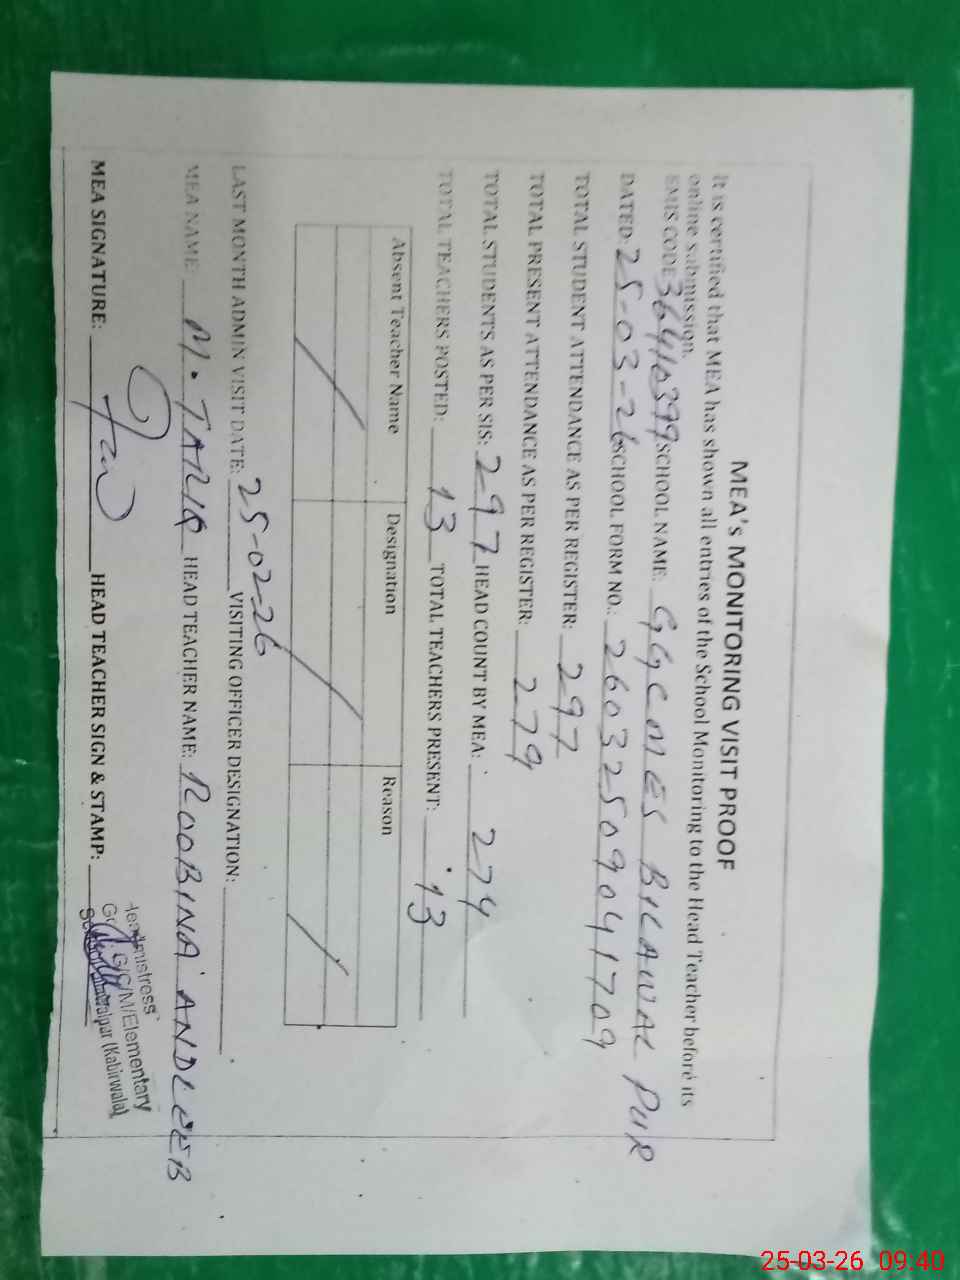 MEA's MONITORING VISIT PROOF
It is certified that MEA has shown all entries of the School Monitoring to the Head Teacher before its
online submission.
EMIS CODE 36410399 SCHOOL NAME: GGCMES BILAWAL PUR
DATED: 25-03-26 SCHOOL FORM NO.: 26032509041709
TOTAL STUDENT ATTENDANCE AS PER REGISTER: 297
TOTAL PRESENT ATTENDANCE AS PER REGISTER: 279
TOTAL STUDENTS AS PER SIS: 297 HEAD COUNT BY MEA: 274
TOTAL TEACHERS POSTED: 13 TOTAL TEACHERS PRESENT: 13
Absent Teacher Name Designation Reason
LAST MONTH ADMIN VISIT DATE: 25-02-26 VISITING OFFICER DESIGNATION:
MEA NAME: M. TARIQ HEAD TEACHER NAME: ROOBINA ANDLEEB
MEA SIGNATURE: HEAD TEACHER SIGN & STAMP:
Headmistress
G/G/M/Elementary
(Kabirwala)
25-03-26 09:40